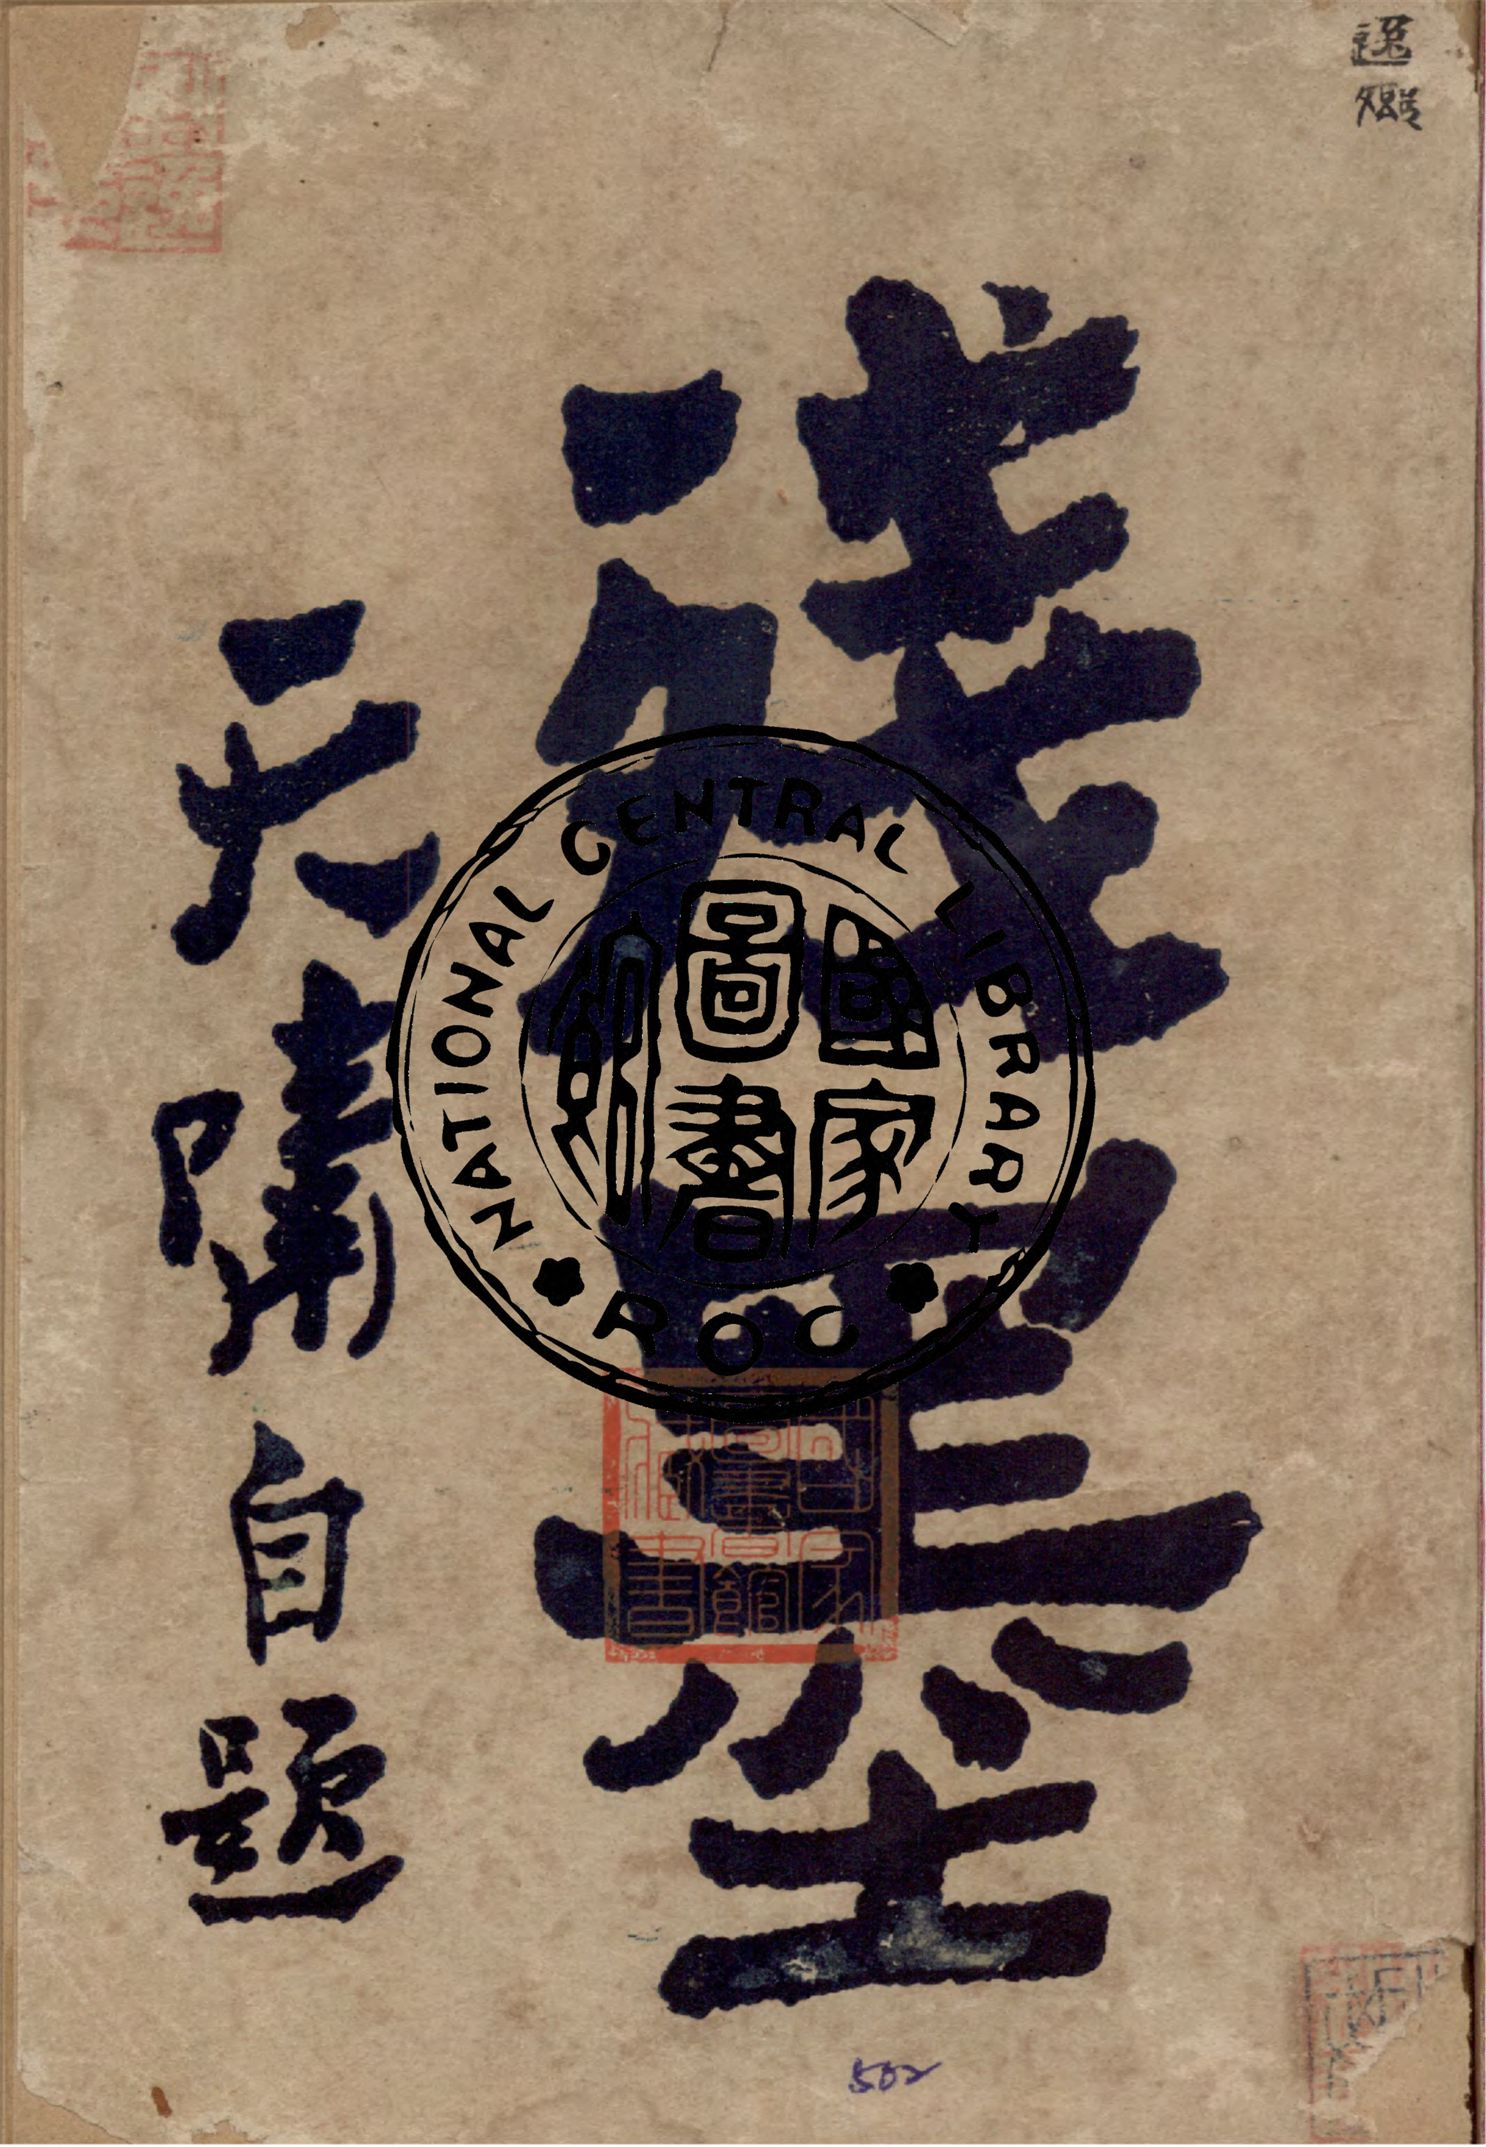 殘墨
天嘯自題
NATIONAL CENTRAL LIBRARY
國家圖書館
ROC
國家圖書館藏書
502